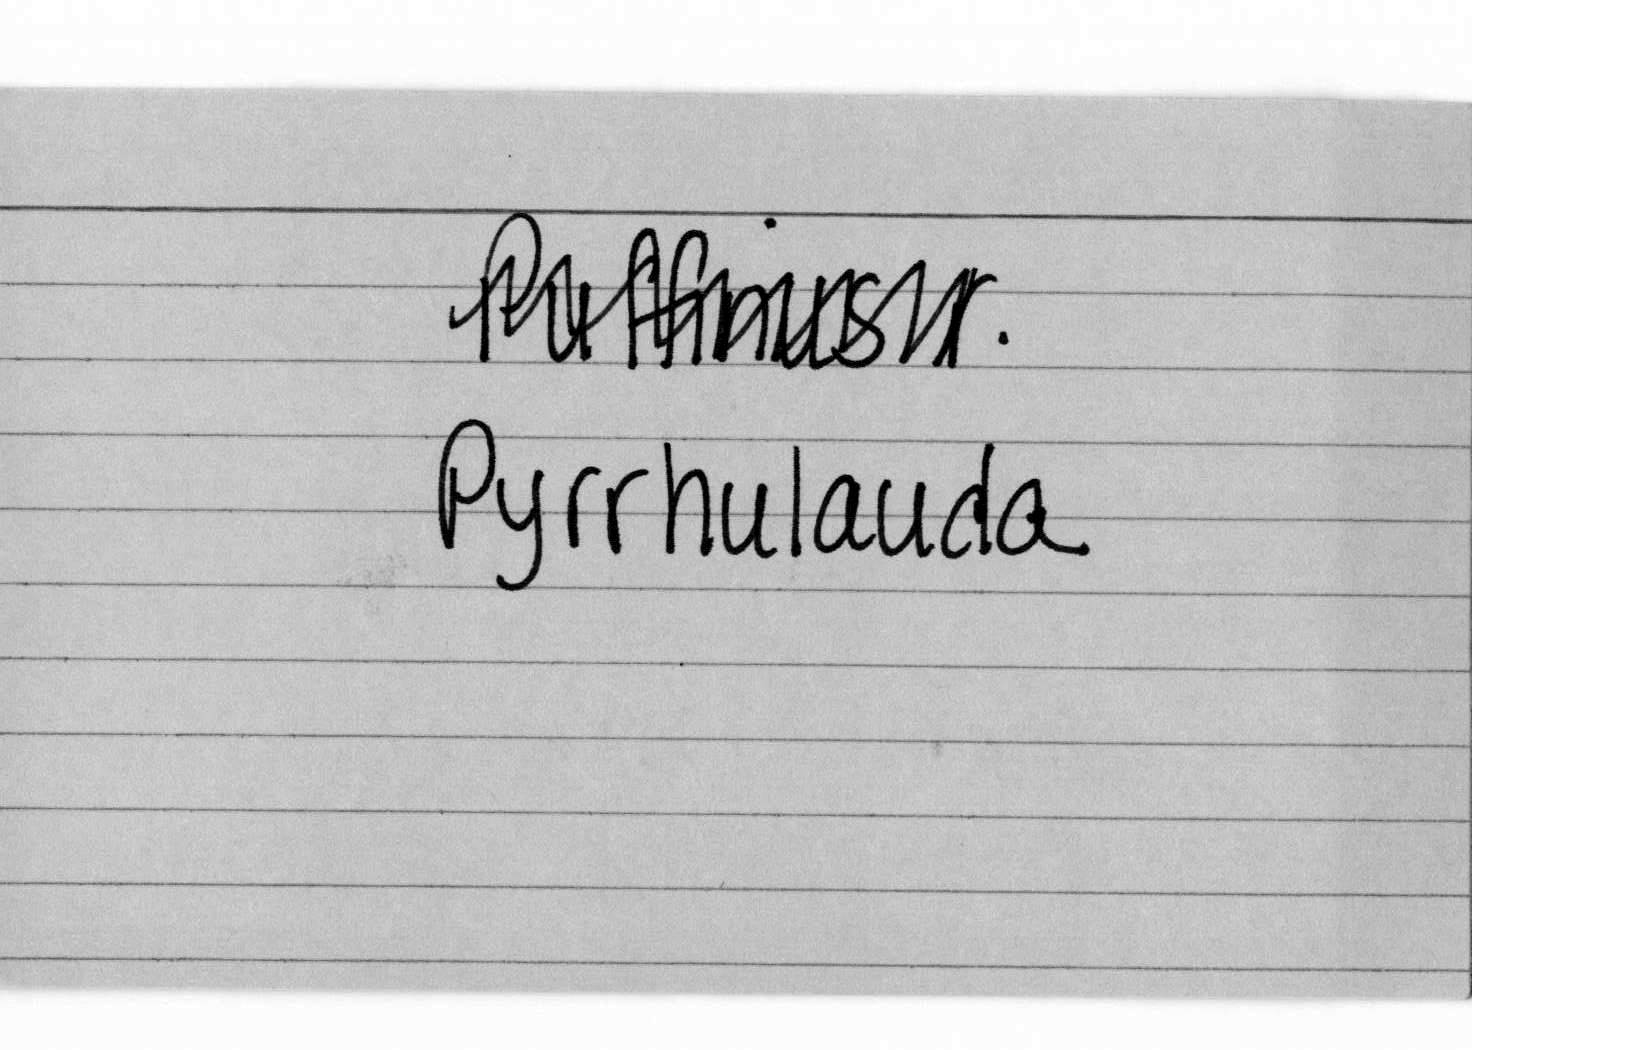 Puffinus
Pyrrhulauda